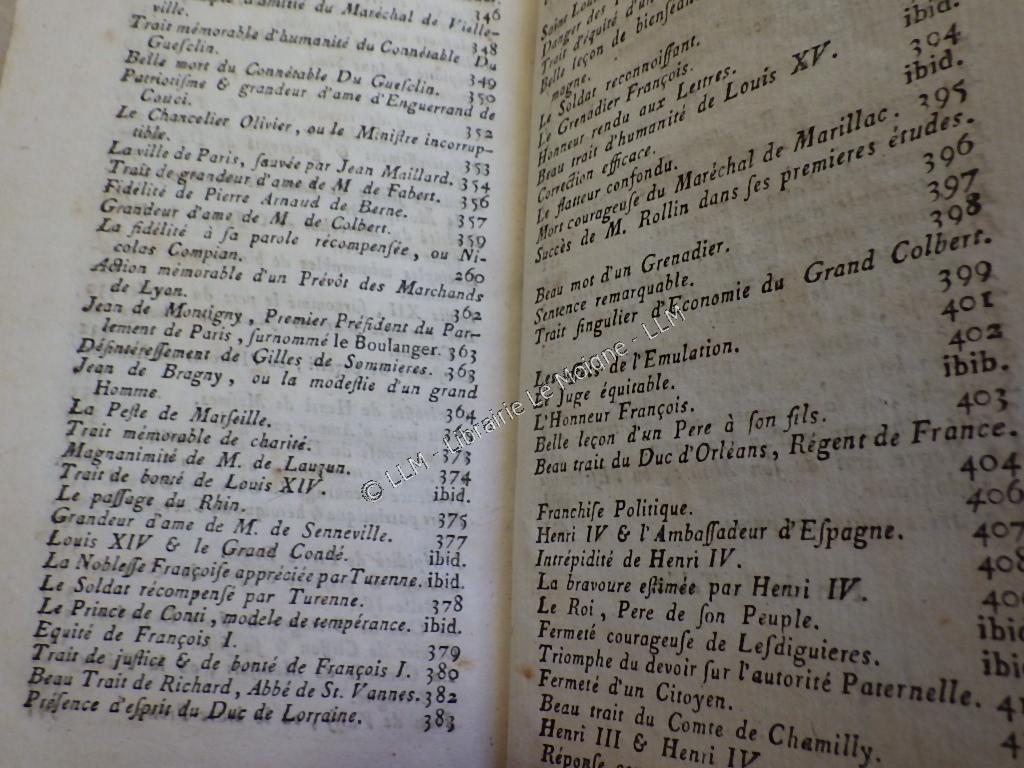 d'amitié du Maréchal de Vielle-
ville. 346
Trait mémorable d'humanité du Connétable Du
Gueſclin. 348
Belle mort du Connétable Du Gueſclin. 349
Patriotiſme & grandeur d'ame d'Enguerrand de
Couci. 350
Le Chancelier Olivier, ou le Miniſtre incorrup-
tible. 352
La ville de Paris, ſauvée par Jean Maillard. 353
Trait de grandeur d'ame de M. de Fabert. 354
Fidélité de Pierre Arnaud de Berne. 356
Grandeur d'ame de M. de Colbert. 357
La fidélité à ſa parole récompenſée, ou Ni-
colas Compian. 359
Action mémorable d'un Prévôt des Marchands
de Lyon. 260
Jean de Montigny, Premier Préſident du Par-
lement de Paris, ſurnommé le Boulanger. 362
Déſintéreſſement de Gilles de Sommieres. 363
Jean de Bragny, ou la modeſtie d'un grand
Homme. 363
La Peſte de Marſeille. 364
Trait mémorable de charité.
Magnanimité de M. de Lauzun. 373
Trait de bonté de Louis XIV. 374
Le paſſage du Rhin. ibid.
Grandeur d'ame de M. de Senneville. 375
Louis XIV & le Grand Condé. 377
La Nobleſſe Françoiſe appréciée par Turenne. ibid.
Le Soldat récompenſé par Turenne. ibid.
Le Prince de Conti, modele de tempérance. 378
Equité de François I. ibid.
Trait de juſtice & de bonté de François I. 379
Beau Trait de Richard, Abbé de St. Vannes. 380
Préſence d'eſprit du Duc de Lorraine. 382
383
Saint Loui
Danger des
Trait d'équité d'un
Belle leçon de bienſéan
magne.
Le Soldat reconnoiſſant.
Le Grenadier François.
Honneur rendu aux Lettres. ibid.
Beau trait d'humanité de Louis XV. 394
Correction efficace. ibid.
Le flatteur confondu. 395
Mort courageuſe du Maréchal de Marillac.
Succès de M. Rollin dans ſes premieres études. 396
397
Beau mot d'un Grenadier. 398
Sentence remarquable.
Trait ſingulier d'Economie du Grand Colbert. 399
401
Les de l'Emulation. 402
Le Juge équitable. ibib.
L'Honneur François. 403
Belle leçon d'un Pere à ſon fils.
Beau trait du Duc d'Orléans, Régent de France. 404
Franchiſe Politique. 406
Henri IV & l'Ambaſſadeur d'Eſpagne. 407
Intrépidité de Henri IV. 408
La bravoure eſtimée par Henri IV.
Le Roi, Pere de ſon Peuple. ibid
Fermeté courageuſe de Leſdiguieres.
Triomphe du devoir ſur l'autorité Paternelle.
Fermeté d'un Citoyen.
Beau trait du Comte de Chamilly.
Henri III & Henri IV
Réponſe
© LLM - Librairie Le Moigne - LLM